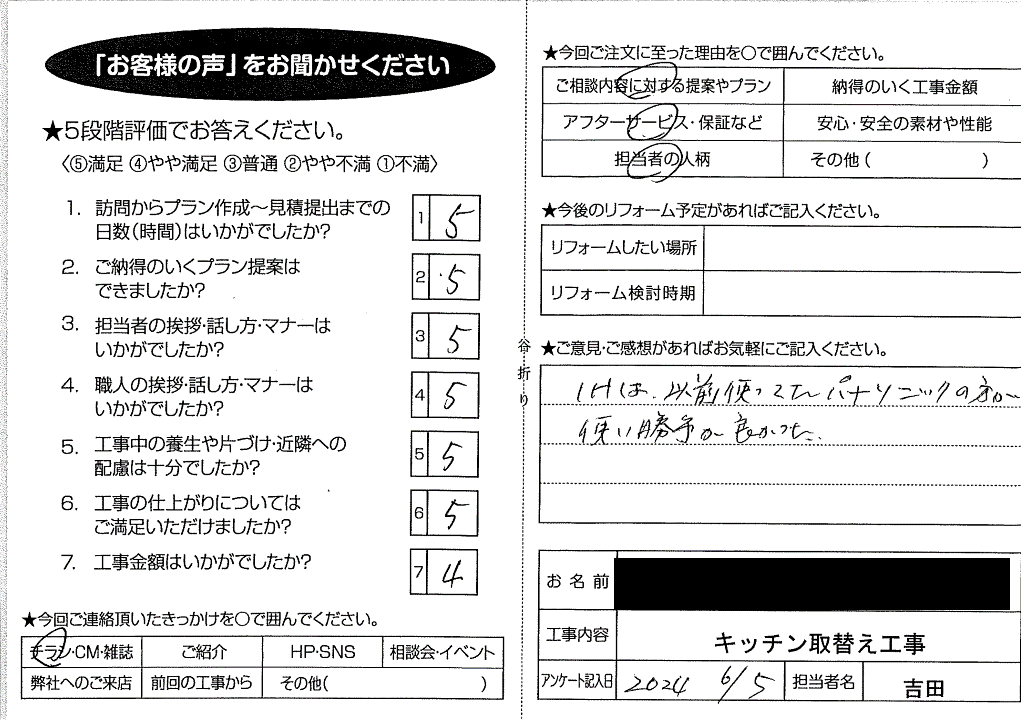 「お客様の声」をお聞かせください
★5段階評価でお答えください。
〈⑤満足 ④やや満足 ③普通 ②やや不満 ①不満〉
1. 訪問からプラン作成～見積提出までの
日数(時間)はいかがでしたか?
1 5
2. ご納得のいくプラン提案は
できましたか?
2 5
3. 担当者の挨拶・話し方・マナーは
いかがでしたか?
3 5
4. 職人の挨拶・話し方・マナーは
いかがでしたか?
4 5
5. 工事中の養生や片づけ・近隣への
配慮は十分でしたか?
5 5
6. 工事の仕上がりについては
ご満足いただけましたか?
6 5
7. 工事金額はいかがでしたか?
7 4
★今回ご連絡頂いたきっかけを〇で囲んでください。
チラシ・CM・雑誌 ご紹介 HP・SNS 相談会・イベント
弊社へのご来店 前回の工事から その他( )
谷折り
★今回ご注文に至った理由を〇で囲んでください。
ご相談内容に対する提案やプラン 納得のいく工事金額
アフターサービス・保証など 安心・安全の素材や性能
担当者の人柄 その他( )
★今後のリフォーム予定があればご記入ください。
リフォームしたい場所
リフォーム検討時期
★ご意見・ご感想があればお気軽にご記入ください。
IHは、以前使ってたパナソニックの方が
使い勝手が良かった。
お名前
工事内容 キッチン取替え工事
アンケート記入日 2024 6/5 担当者名 吉田